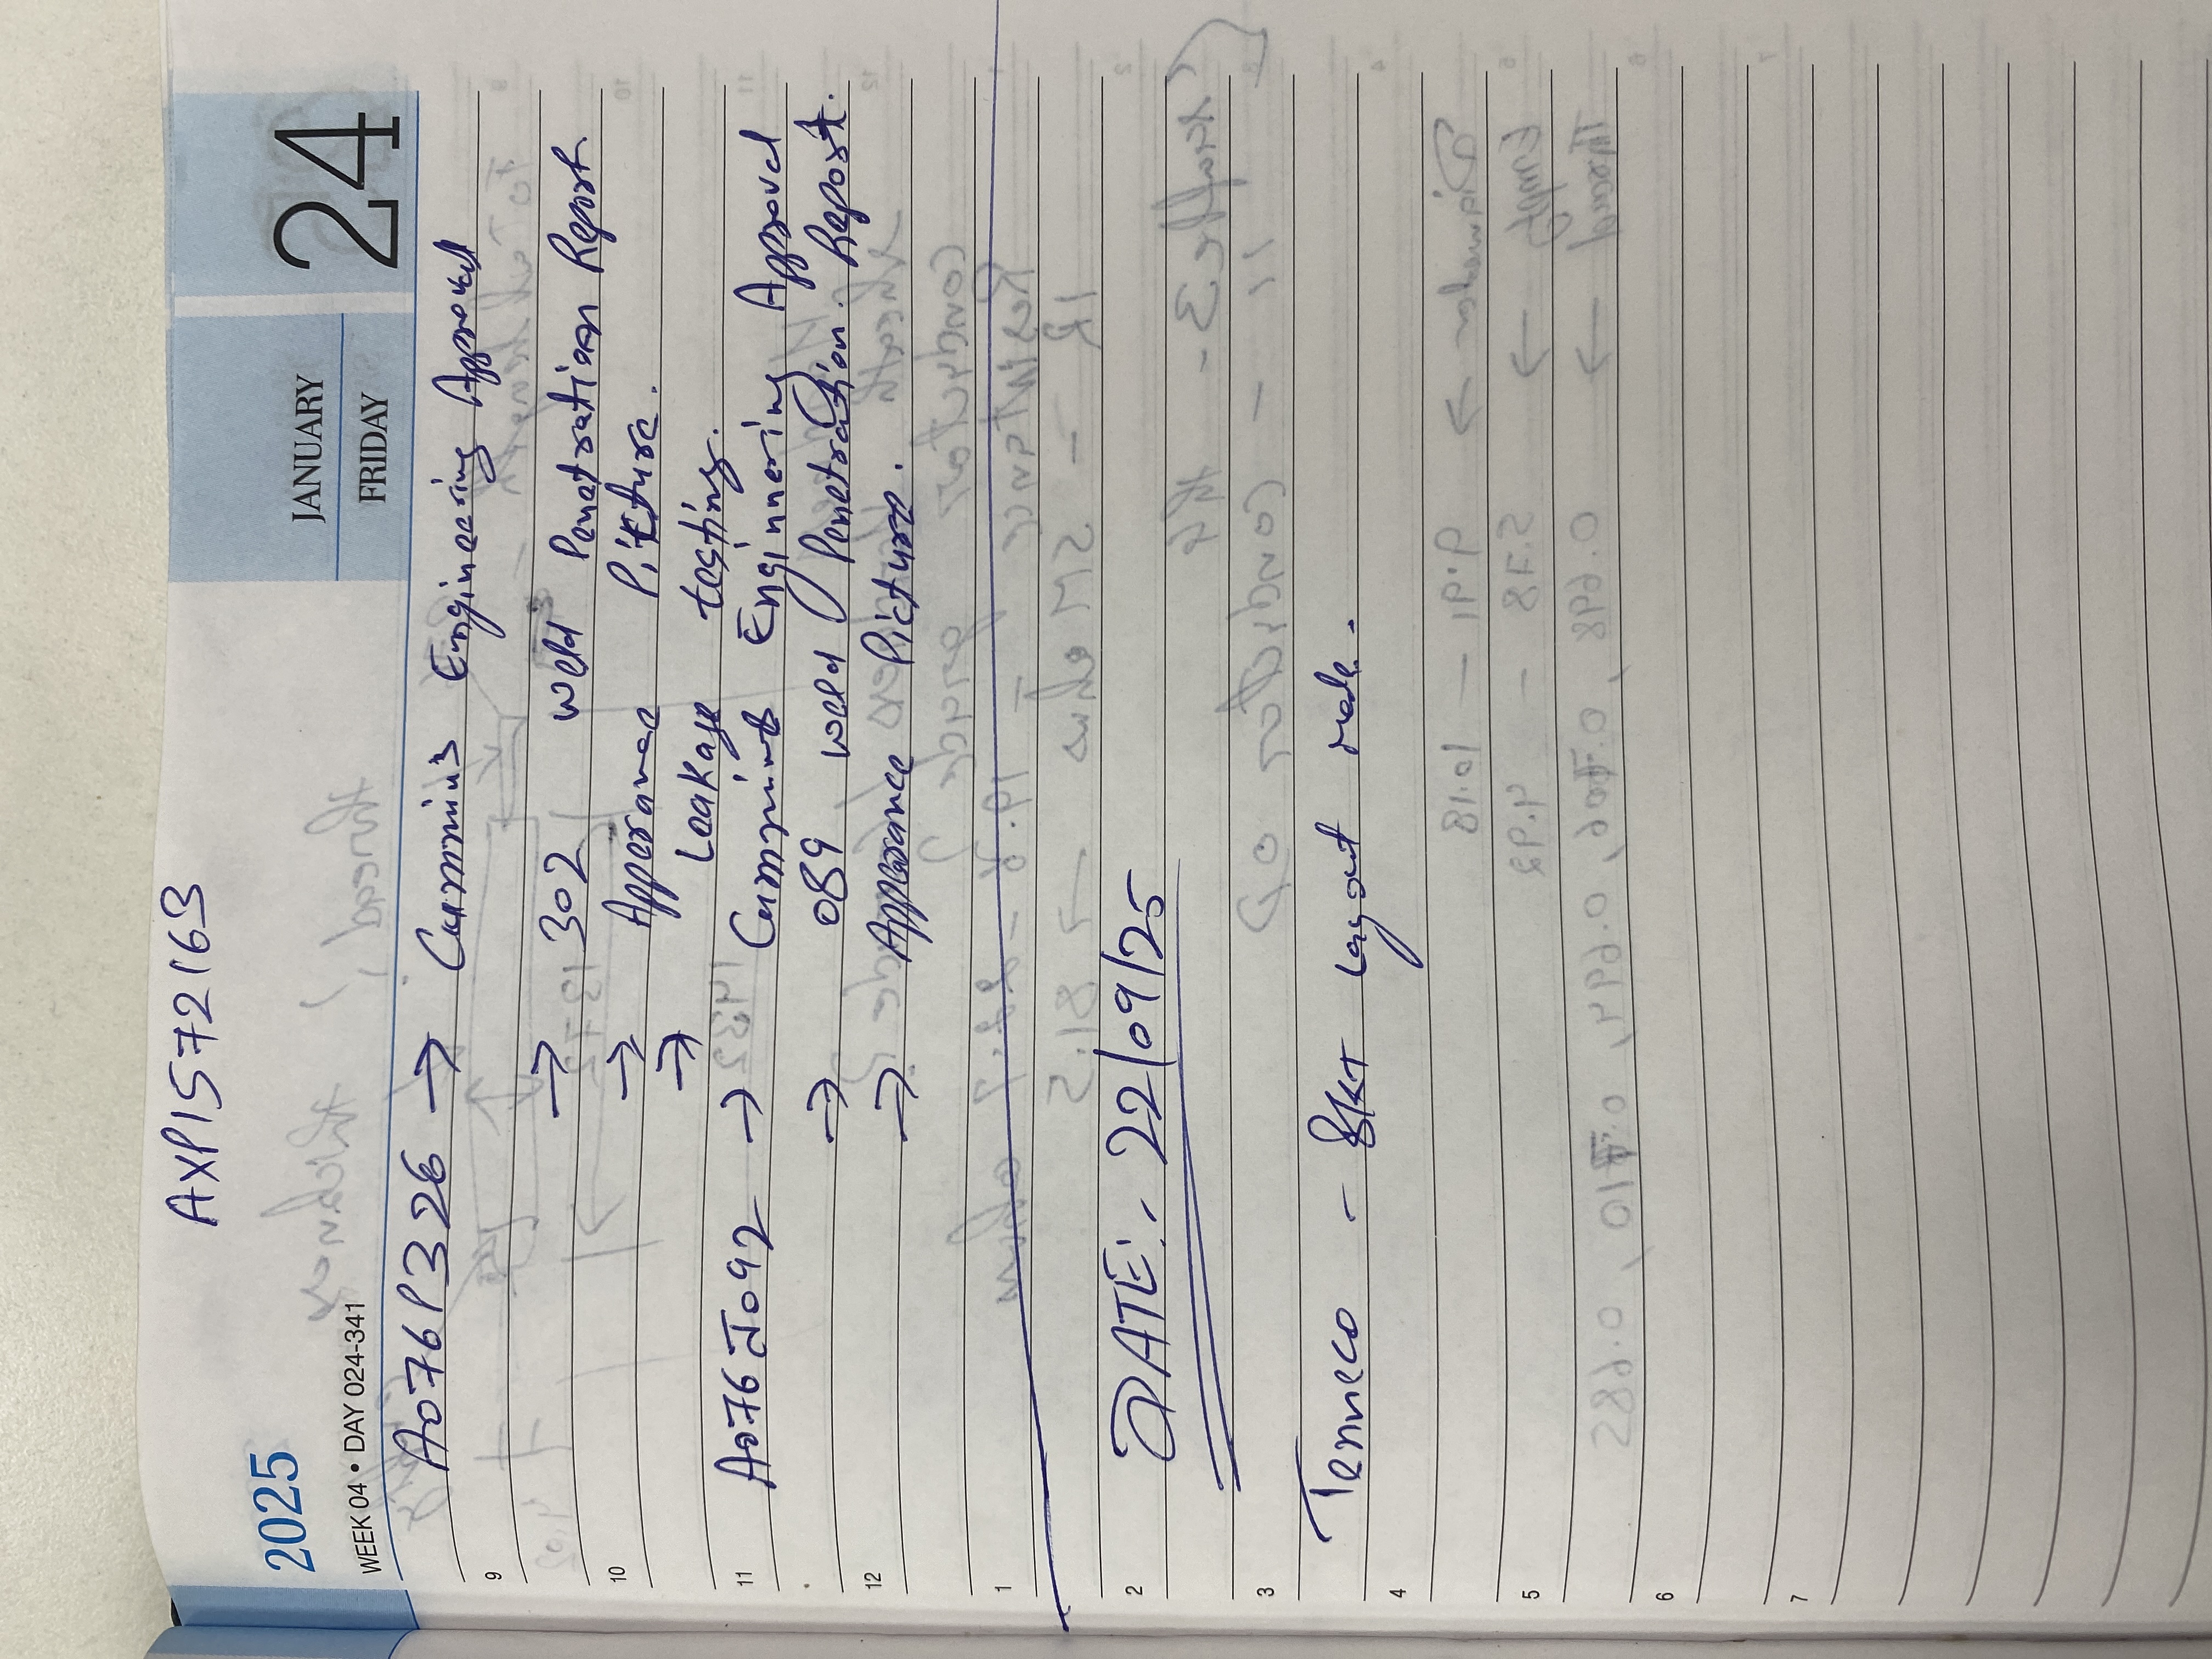 AXP1572163
2025
JANUARY
24
WEEK 04 • DAY 024-341
FRIDAY
A076P326 → Cummins Engineering Approval
9
→ 302 weld Penatration Report
10
→ Apperance Picture.
→ Leakage testing.
11
A076J092 → Cummins Enginnering Approval
→ 089 weld Penetration Report.
12
→ Apperance Picture.
1
2
DATE:- 22/09/25
3
Tenneco - Layout made.
4
5
6
7